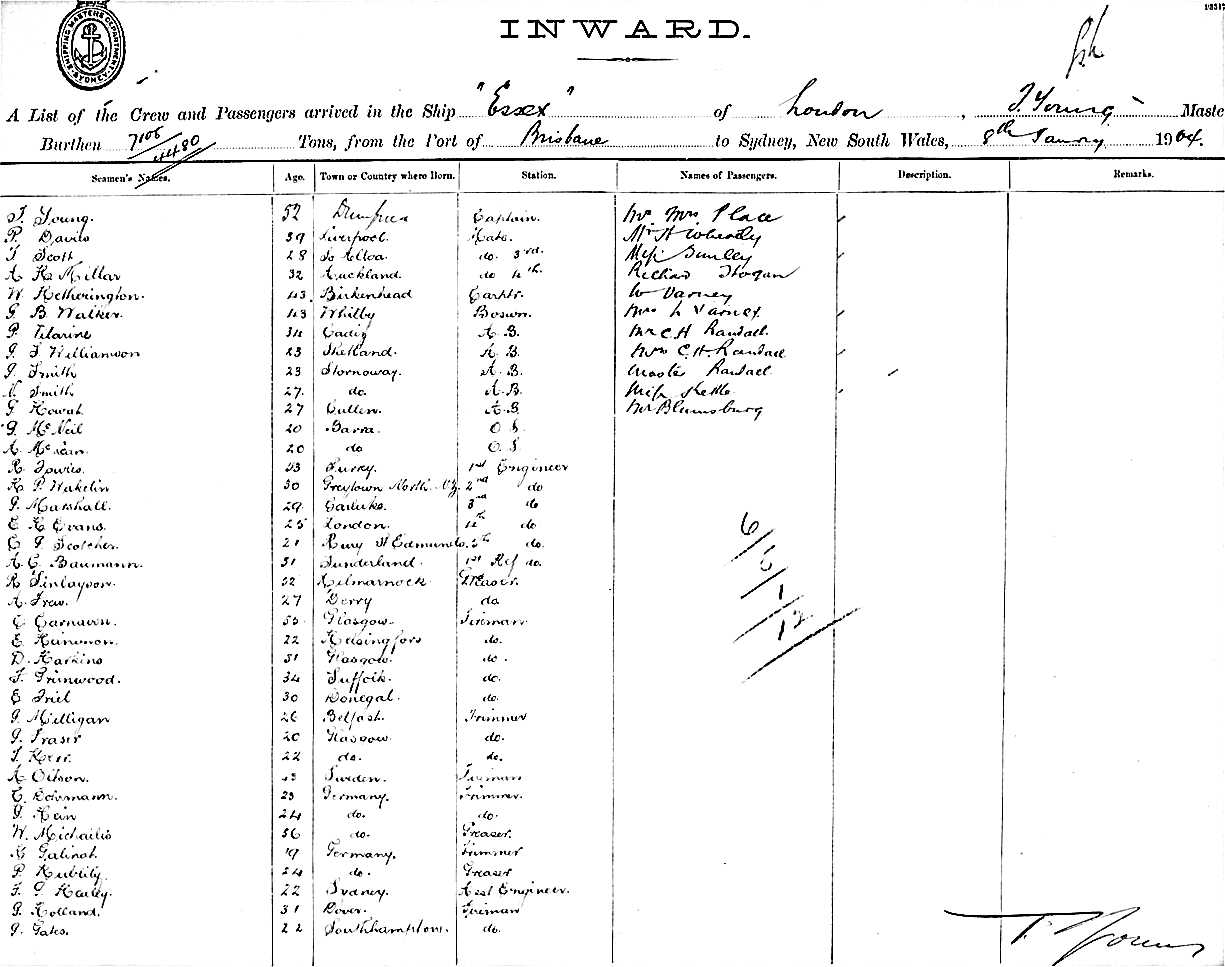 INWARD.
SHIPPING MASTERS DEPARTMENT
SYDNEY
A List of the Crew and Passengers arrived in the Ship "Essex" of London, T. Young Maste
Burthen 7106 / 4480 Tons, from the Port of Brisbane to Sydney, New South Wales, 8th 1904.
Seamen's Names. Age. Town or Country where Born. Station. Names of Passengers. Description. Remarks.
T. Young. 52 Dumfries Captain. Mr Mrs Place
P. Davies 39 Liverpool. Mate. Mr H
T. Scott 28 Alloa do. 3rd. Miss
A Millar 32 Auckland do 4th. Richard Hogan
W. Hetherington. 43 Birkenhead Carptr. W Varney
G B Walker. 43 Whitby Boswn. Mrs L Varney
P. 34 Cadiz A. B. Mr C H Randall
J. T Williamson 23 Shetland. A. B. Mrs C. H. Randall
J. Smith 23 Stornoway. A. B. Master Randall
N. Smith 27. do. A. B. Miss Kettle
G Howat 27 Cullen. A. B Mr Blumsburg
J. McNeil 20 Barra. O S.
A. 20 do O. S.
R. 43 1st Engineer
H. P. Wakelin 30 Greytown North. NZ. 2nd do
J. Marshall. 29. Carluke. 3rd do
E H Evans. 25 London. 4th do
C J. Scotcher. 21 Bury St Edmunds. 5th do.
A. C. Baumann. 31 Sunderland. 1st Ref do.
R Finlayson. 52 Kilmarnock Greaser.
A. Frew. 27 Derry do
C Carnaven. 55 Glasgow. Fireman
E 22 Helsingfors do.
D. Harkins 31 Glasgow. do.
F. Grimwood. 34 Suffolk. do.
E Friel 30 Donegal. do.
J. Milligan 26 Belfast. Trimmer
J. Fraser 20 Glasgow do.
T. Kerr. 22 do. do.
A Oilson. 43 Sweden. Fireman
C. 23 Germany. Trimmer.
J. Hein 24 do. do.
W. Michailis 36 do. Greaser.
19 Germany. Trimmer
P. 24 do. Greaser
T. J. Harley. 22 Sydney. Asst Engineer.
J. Holland. 31 Dover. Fireman
J. Gates. 22 Southhampton. do.
6/5/1/12
T. Young